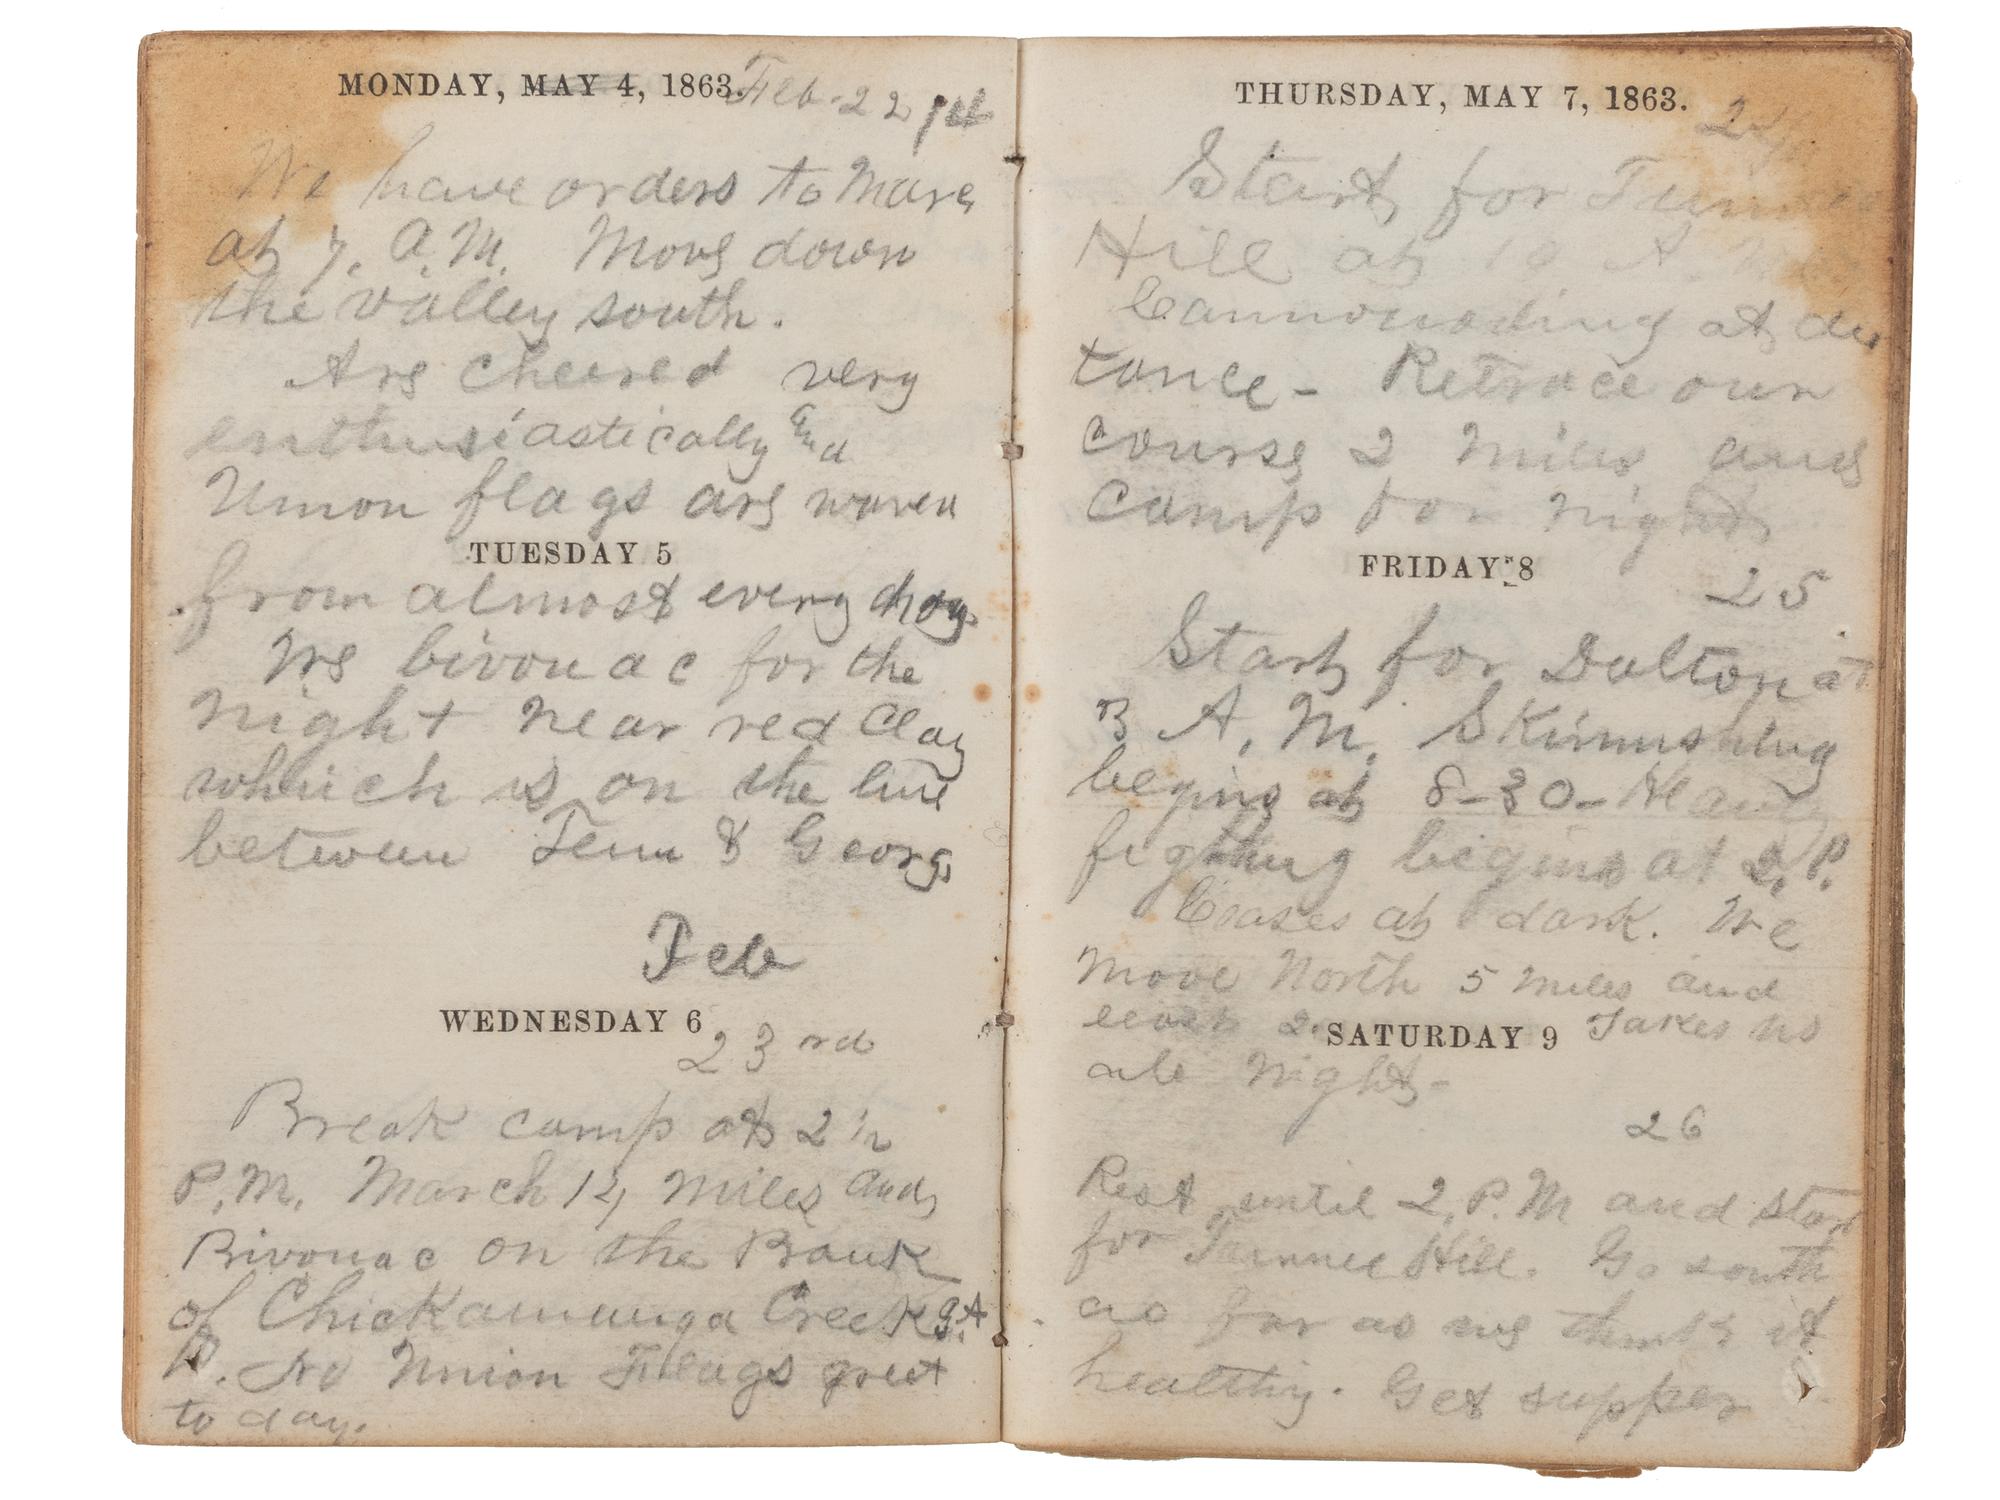 MONDAY, MAY 4, 1863. Feb. 22
We have orders to Move
at 7. A.M. Move down
the valley south.
Are cheered very
enthusiastically and
Union flags are waved
TUESDAY 5
from almost every
We bivouac for the
night near red Clay
which is on the line
between Tenn & Georg
Feb
WEDNESDAY 6
23 rd
Break camp at 2 1/2
P.M. March 14 miles and
Bivouac on the Bank
of Chickamauga Creek at
No Union Flags greet
to day.
THURSDAY, MAY 7, 1863.
24
Start for Tunnel
Hill at 10 A.M.
Cannonading at dis
tance - Retrace our
course 2 miles and
camp for night
FRIDAY 8
25
Start for Dalton at
3 A.M. Skirmishing
begins at 8-30- Heavy
fighting begins at 2, P.
Ceases at dark. We
move North 5 miles and
SATURDAY 9 Takes us
all night-
26
Rest until 2, P.M and star
for Tunnel Hill. Go south
as far as we think it
healthy. Get supper